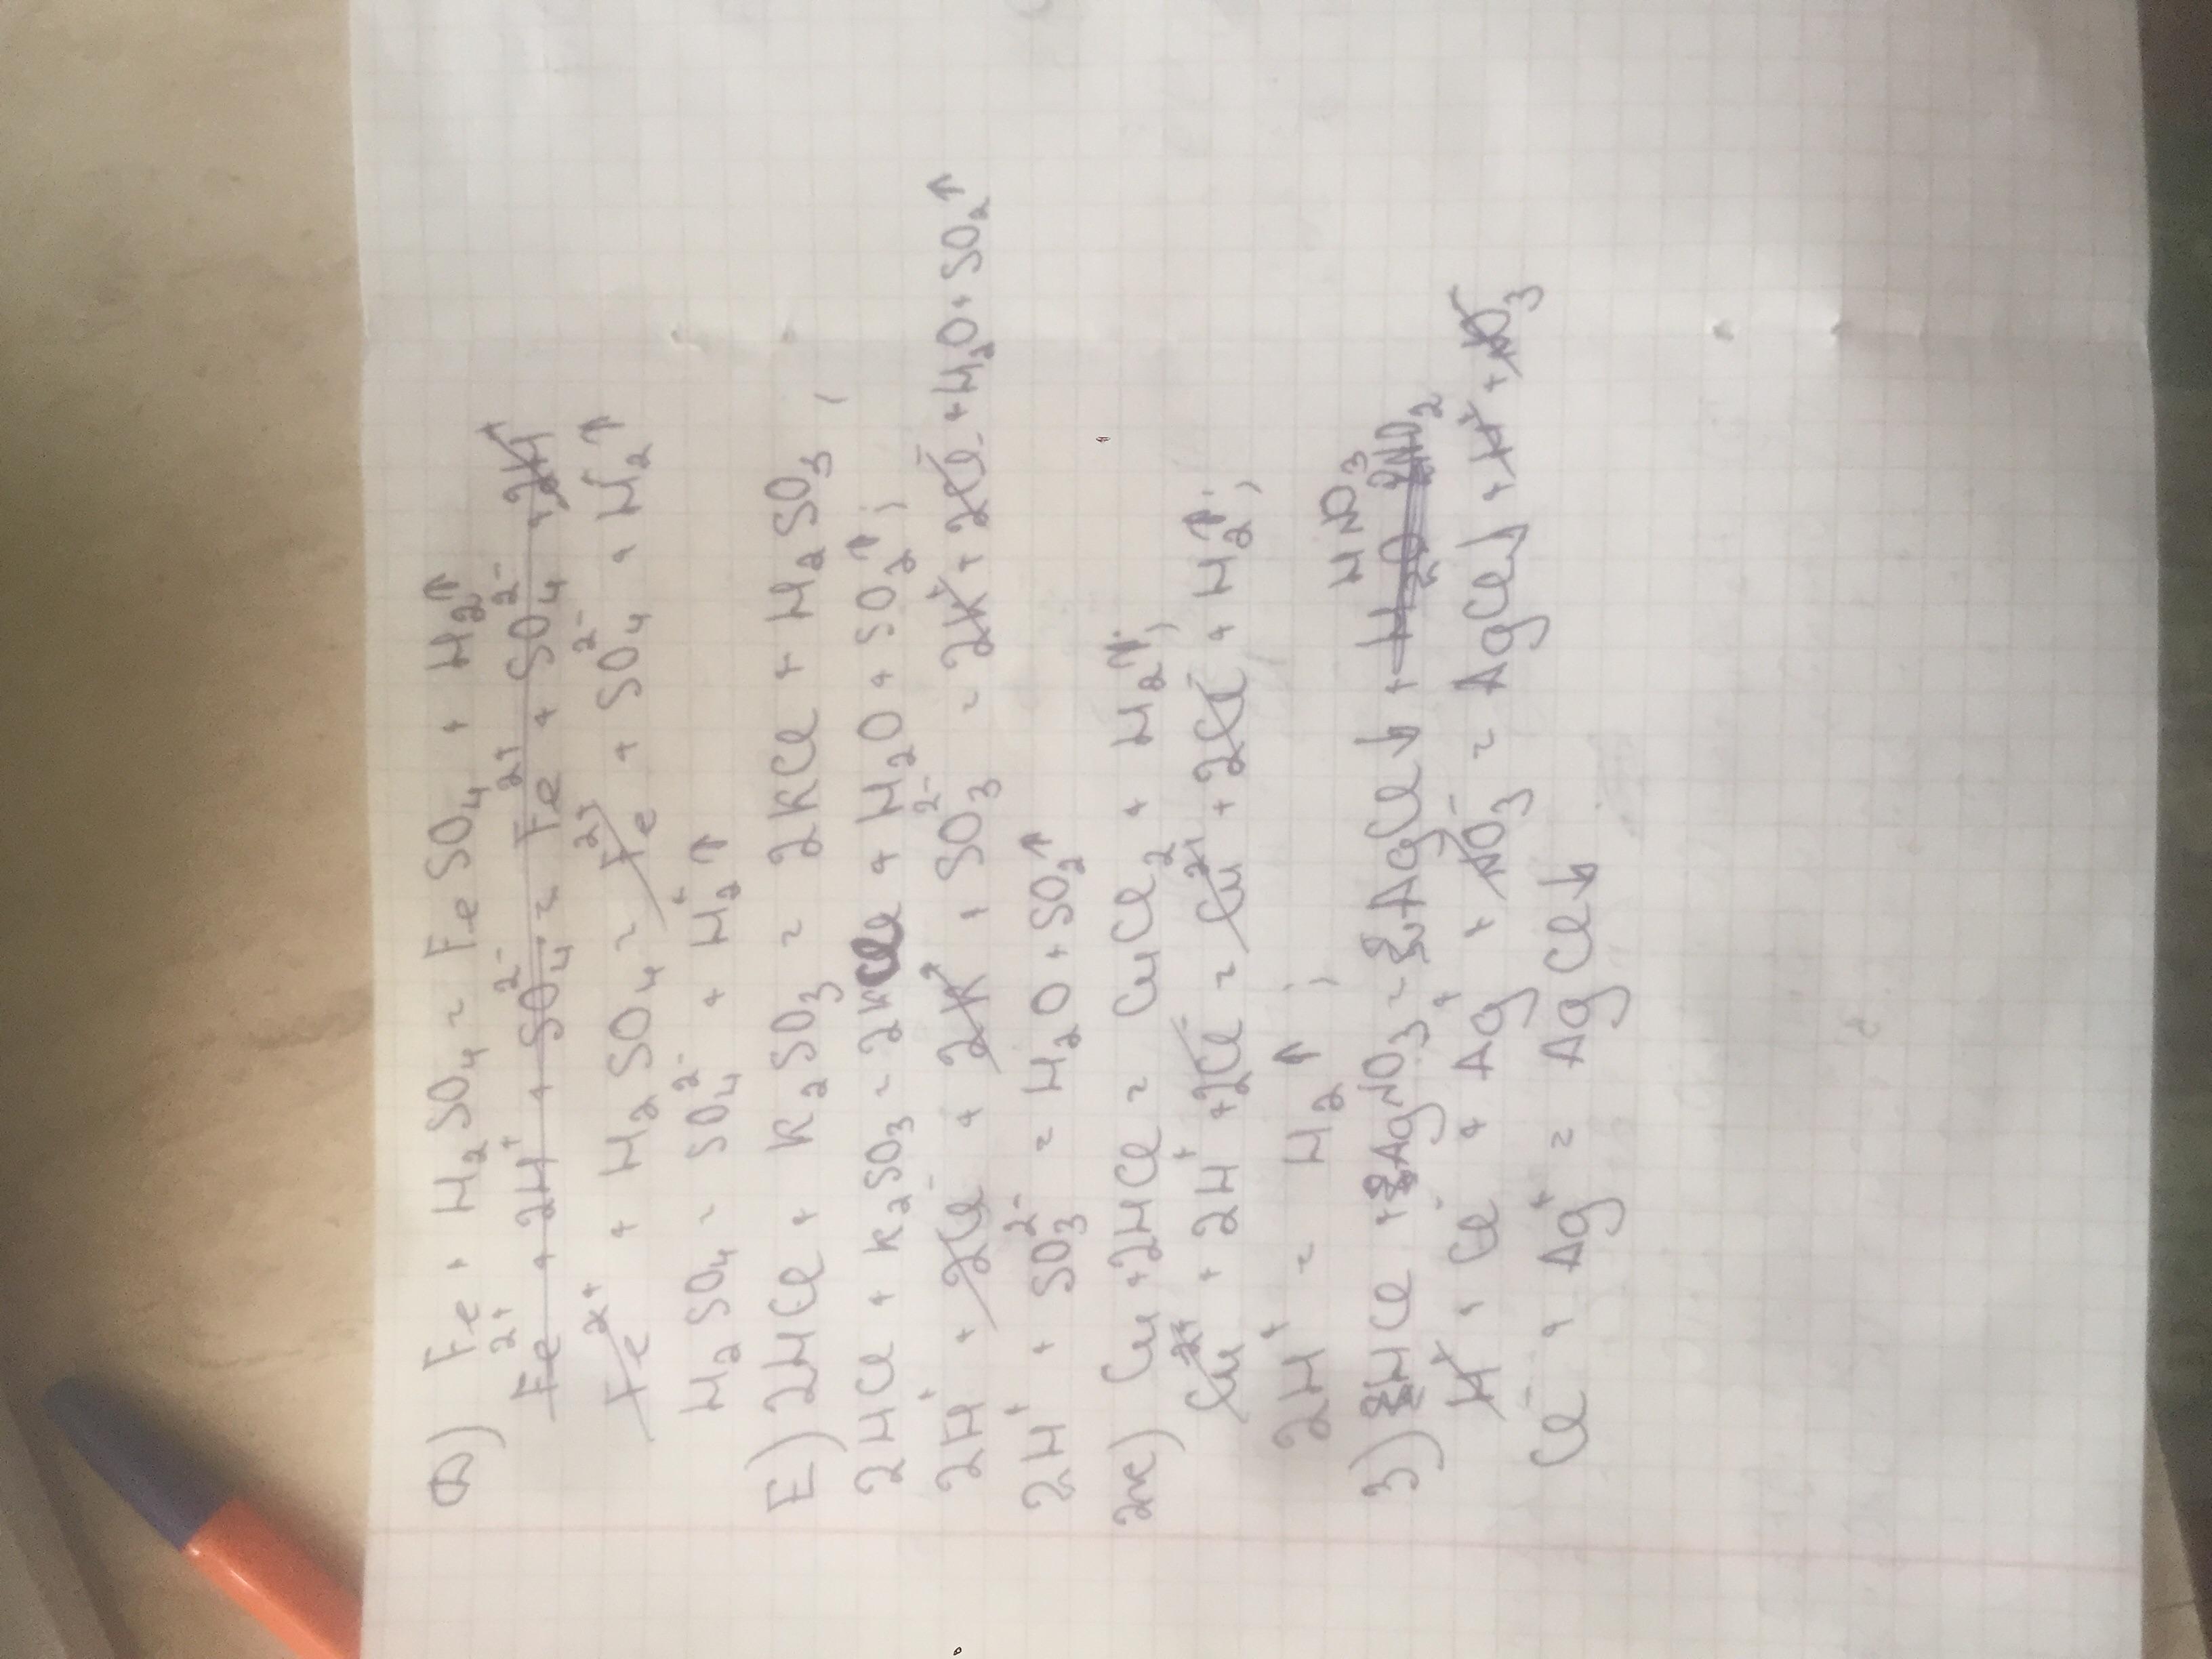 Д) Fe + H₂SO₄ = FeSO₄ + H₂↑
Fe²⁺ + 2H⁺ + SO₄²⁻ = Fe²⁺ + SO₄²⁻ + 2H⁺
Fe²⁺ + H₂SO₄ = Fe²⁺ + SO₄²⁻ + H₂↑
H₂SO₄ = SO₄²⁻ + H₂⁺↑
Е) 2HCl + K₂SO₃ = 2KCl + H₂SO₃ ;
2HCl + K₂SO₃ = 2KCl + H₂O + SO₂↑ ;
2H⁺ + 2Cl⁻ + 2K⁺ + SO₃²⁻ = 2K⁺ + 2Cl⁻ + H₂O + SO₂↑
2H⁺ + SO₃²⁻ = H₂O + SO₂↑
Ж) Cu + 2HCl = CuCl₂ + H₂↑ ;
Cu²⁺ + 2H⁺ + 2Cl⁻ = Cu²⁺ + 2Cl⁻ + H₂↑ ;
2H⁺ = H₂↑ ;
З) HCl + AgNO₃ = AgCl↓ + HNO₃
H⁺ + Cl⁻ + Ag⁺ + NO₃⁻ = AgCl↓ + H⁺ + NO₃
Cl⁻ + Ag⁺ = AgCl↓